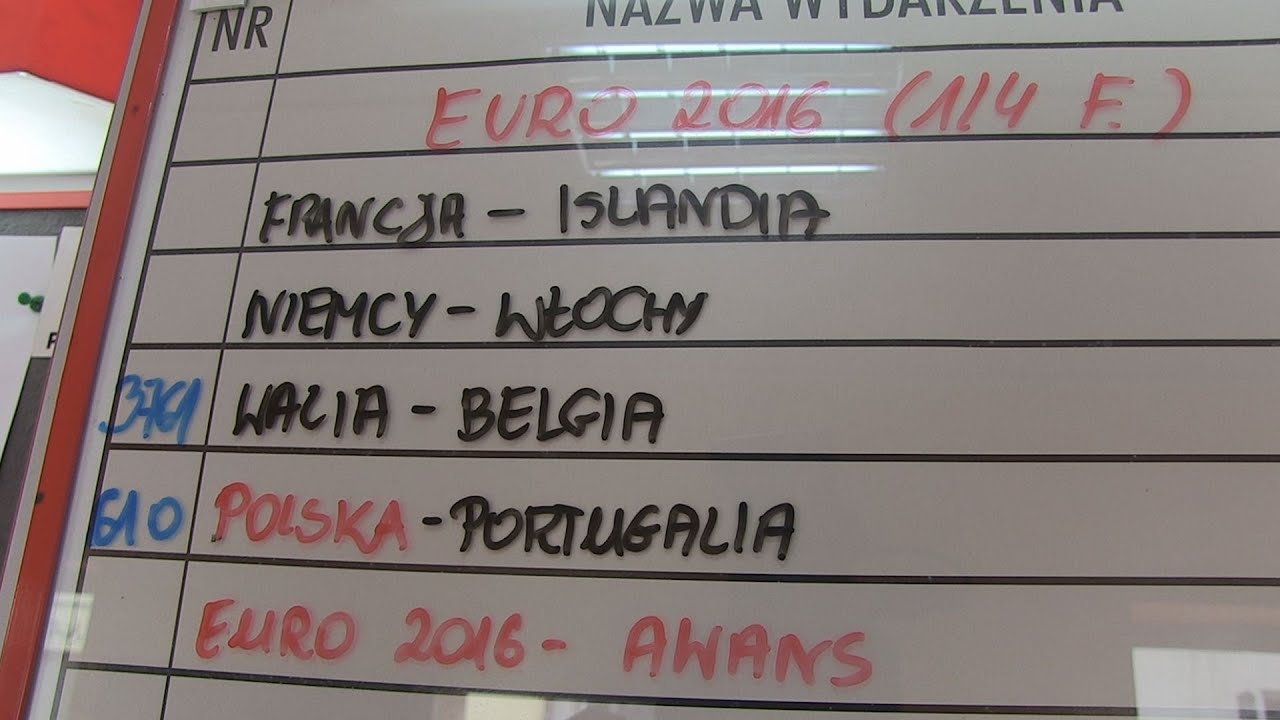 NR NAZWA WYDARZENIA
EURO 2016 (1/4 F.)
FRANCJA - ISLANDIA
NIEMCY - WŁOCHY
3761 WALIA - BELGIA
610 POLSKA - PORTUGALIA
EURO 2016 - AWANS